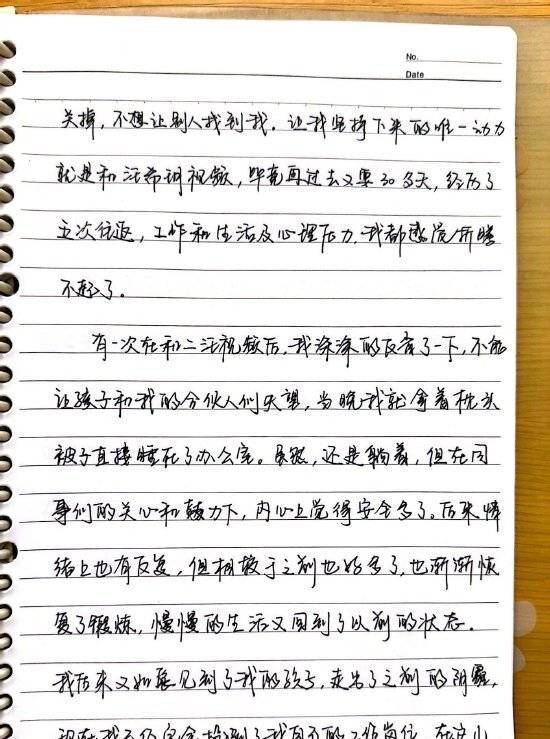 No.
Date
关掉，不想让别人找到我。让我坚持下来的唯一动力
就是和汪希玥视频，毕竟再过去又要30多天，经历了
五次往返，工作和生活及心理压力，我都感觉
不起了。
有一次在和二汪视频后，我深深的反省了一下，不能
让孩子和我的合伙人们失望，当晚我就拿着枕头
被子直接睡在了办公室。虽然，还是躺着，但在同
事们的关心和鼓力下，内心上觉得安全多了。后来情
绪上也有反复，但相较于之前也好多了，也渐渐恢
复了锻炼，慢慢的生活又回到了以前的状态。
我后来又如愿见到了我的孩子，走出了之前的阴霾，
现在我已经完全